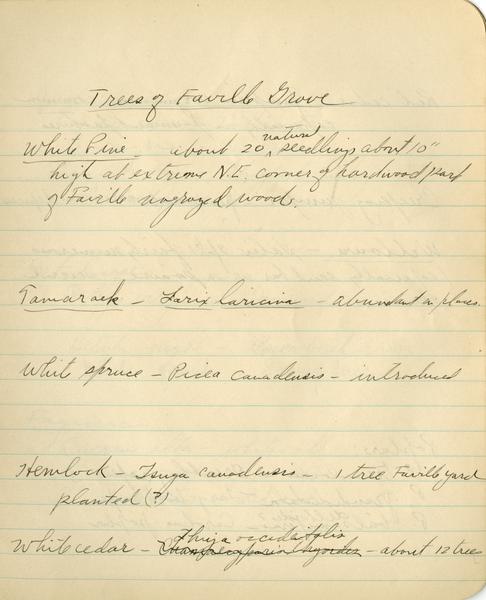 Trees of Faville Grove
White Pine about 20 natural seedlings about 10"
high at extreme N.E. corner of hardwood part
of Faville ungrazed woods.
Tamarack - Larix laricina - abundant in places
White spruce - Picea canadensis - introduced
Hemlock - Tsuga canadensis - 1 tree Faville yard
planted (?)
Thuja occidentalis
White cedar - - about 12 trees